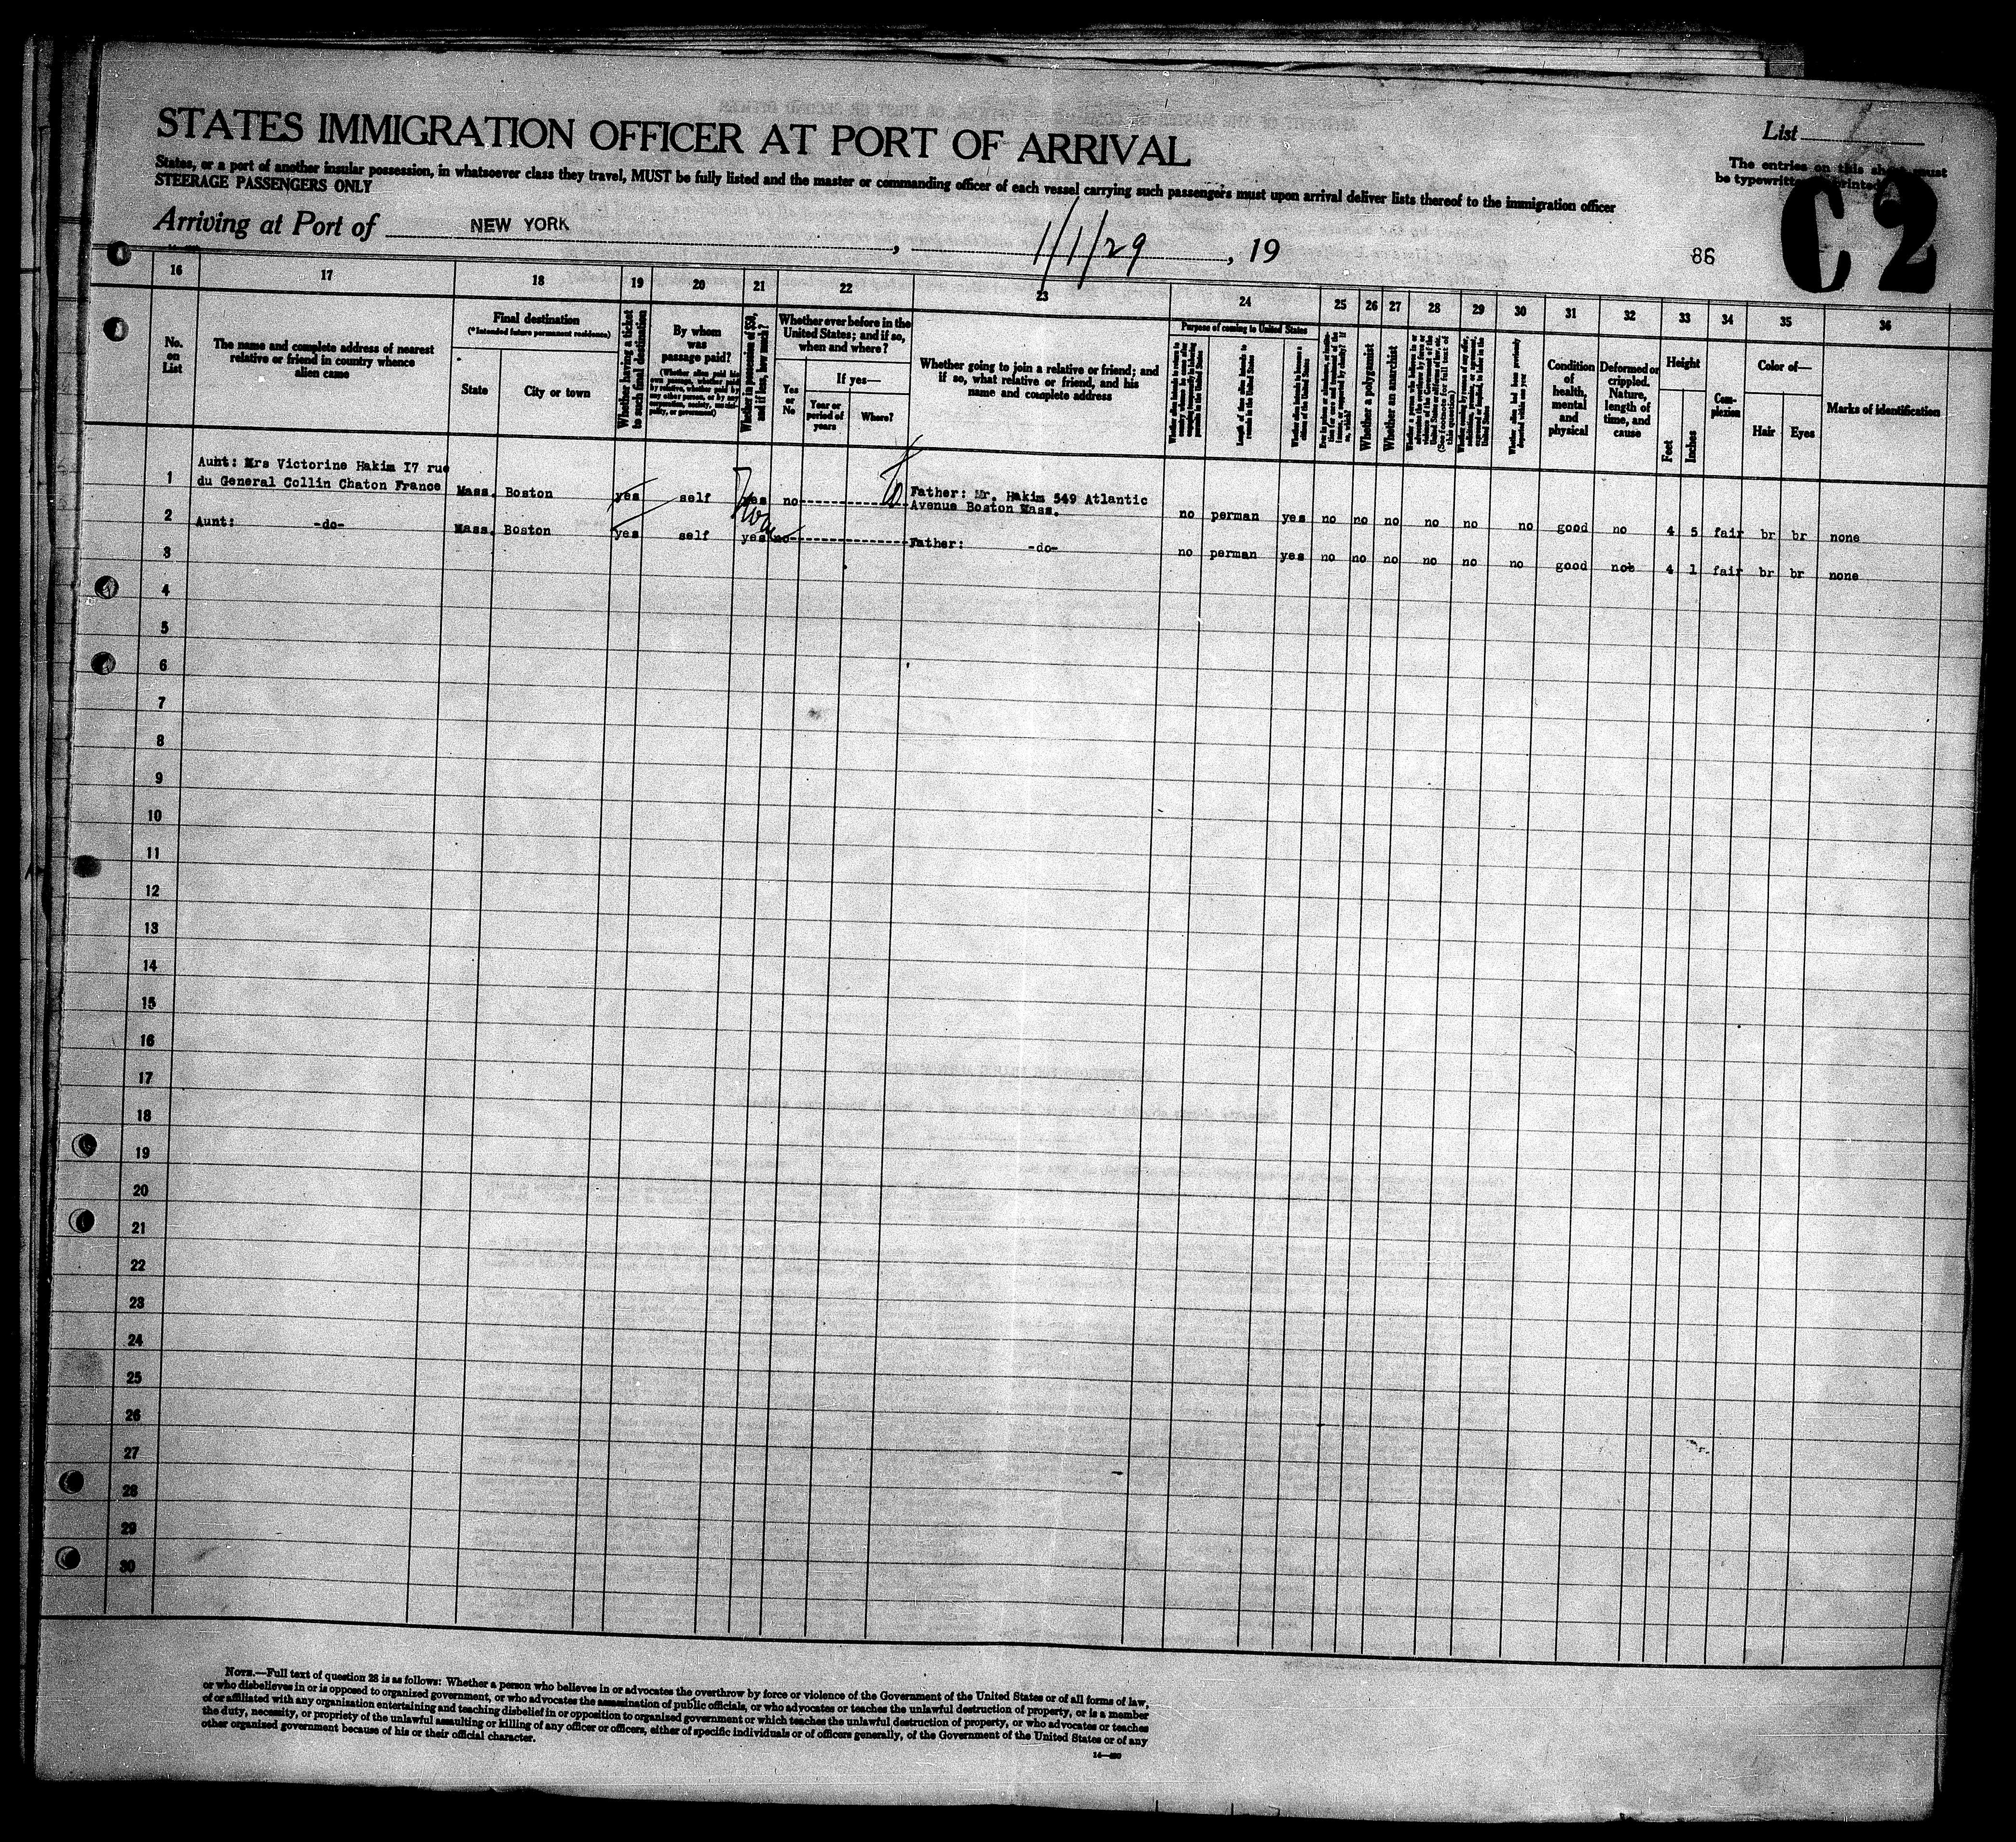 STATES IMMIGRATION OFFICER AT PORT OF ARRIVAL
List
States, or a port of another insular possession, in whatsoever class they travel, MUST be fully listed and the master or commanding officer of each vessel carrying such passengers must upon arrival deliver lists thereof to the immigration officer
The entries on this sheet must
be typewritten or printed
STEERAGE PASSENGERS ONLY
C2
Arriving at Port of NEW YORK , 1/1/29 , 19
86
16 17 18 19 20 21 22 23 24 25 26 27 28 29 30 31 32 33 34 35 36
No.
on
List
The name and complete address of nearest
relative or friend in country whence
alien came
Final destination
(*Intended future permanent residence)
State
City or town
Whether having a ticket
to such final destination
By whom
was
passage paid?
Whether in possession of $50,
and if less, how much?
Whether ever before in the
United States; and if so,
when and where?
Yes
or
No
If yes—
Year or
period of
years
Where?
Whether going to join a relative or friend; and
if so, what relative or friend, and his
name and complete address
Purpose of coming to United States
Length of time alien intends to
remain in the United States
Whether alien intends to become a
citizen of the United States
Whether a polygamist
Whether an anarchist
Whether alien had been previously
deported within one year
Condition
of
health,
mental
and
physical
Deformed or
crippled.
Nature,
length of
time, and
cause
Height
Feet
Inches
Com-
plexion
Color of—
Hair
Eyes
Marks of identification
1 Aunt: Mrs Victorine Hakim 17 rue
du General Collin Chaton France Mass. Boston yes self yes no Father: Mr. Hakim 549 Atlantic
Avenue Boston Mass. no perman yes no no no no no no good no 4 5 fair br br none
2 Aunt: -do- Mass. Boston yes self yes no Father: -do- no perman yes no no no no no no good no 4 1 fair br br none
3
4
5
6
7
8
9
10
11
12
13
14
15
16
17
18
19
20
21
22
23
24
25
26
27
28
29
30
NOTE.—Full text of question 28 is as follows: Whether a person who believes in or advocates the overthrow by force or violence of the Government of the United States or of all forms of law,
or who disbelieves in or is opposed to organized government, or who advocates the assassination of public officials, or who advocates or teaches the unlawful destruction of property, or is a member
of or affiliated with any organization entertaining and teaching disbelief in or opposition to organized government or which teaches the unlawful destruction of property, or who advocates or teaches
the duty, necessity, or propriety of the unlawful assaulting or killing of any officer or officers, either of specific individuals or of officers generally, of the Government of the United States or of any
other organized government because of his or their official character.